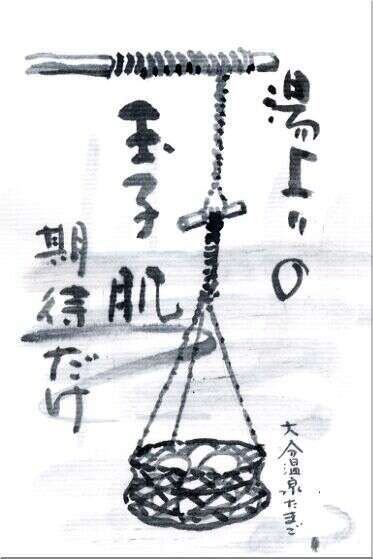 湯上りの
玉子肌
期待だけ
大分温泉たまご